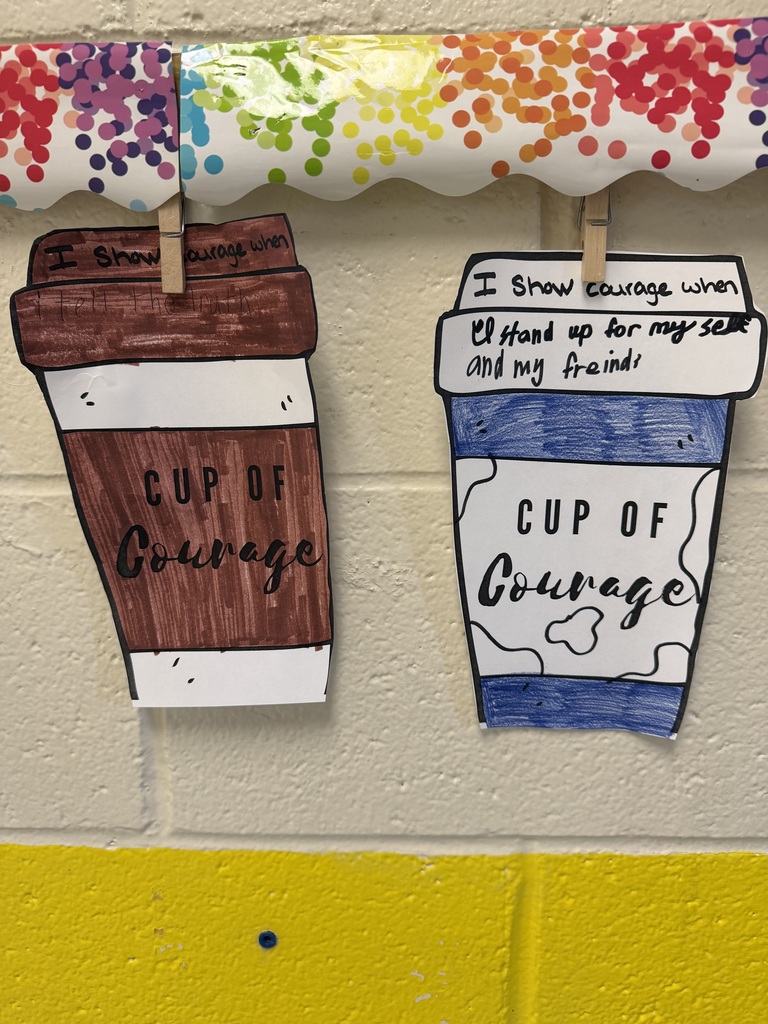 I Show courage when
i tell the truth
CUP OF
Courage
I Show courage when
I stand up for my self
and my freinds
CUP OF
Courage